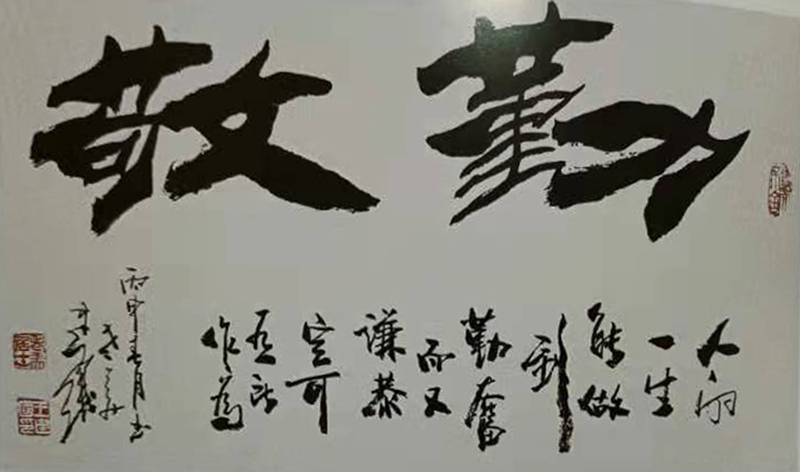 勤敬
人的
一生
能做
到
勤奮
而又
謙恭
定可
有所
作為
丙申春月书